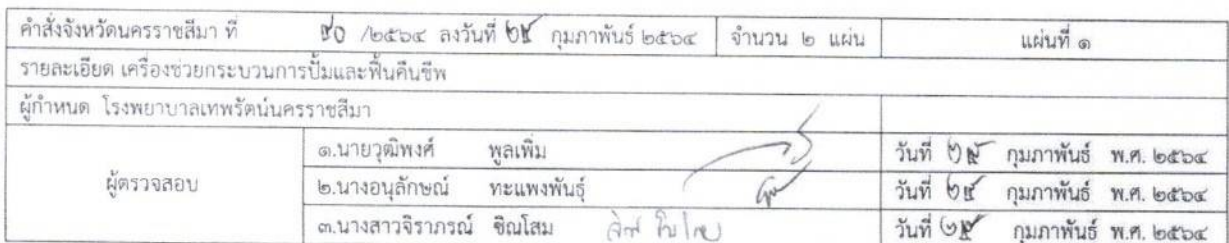 คำสั่งจังหวัดนครราชสีมา ที่ /๒๕๖๔ ลงวันที่ ๒๕ กุมภาพันธ์ ๒๕๖๔ จำนวน ๒ แผ่น แผ่นที่ ๑
รายละเอียด เครื่องช่วยกระบวนการปั๊มและฟื้นคืนชีพ
ผู้กำหนด โรงพยาบาลเทพรัตน์นครราชสีมา
๑.นายวุฒิพงศ์ พูลเพิ่ม วันที่ ๒๕ กุมภาพันธ์ พ.ศ. ๒๕๖๔
ผู้ตรวจสอบ ๒.นางอนุลักษณ์ ทะแพงพันธุ์ วันที่ ๒๕ กุมภาพันธ์ พ.ศ. ๒๕๖๔
๓.นางสาวจิราภรณ์ ชิณโสม วันที่ ๒๕ กุมภาพันธ์ พ.ศ. ๒๕๖๔